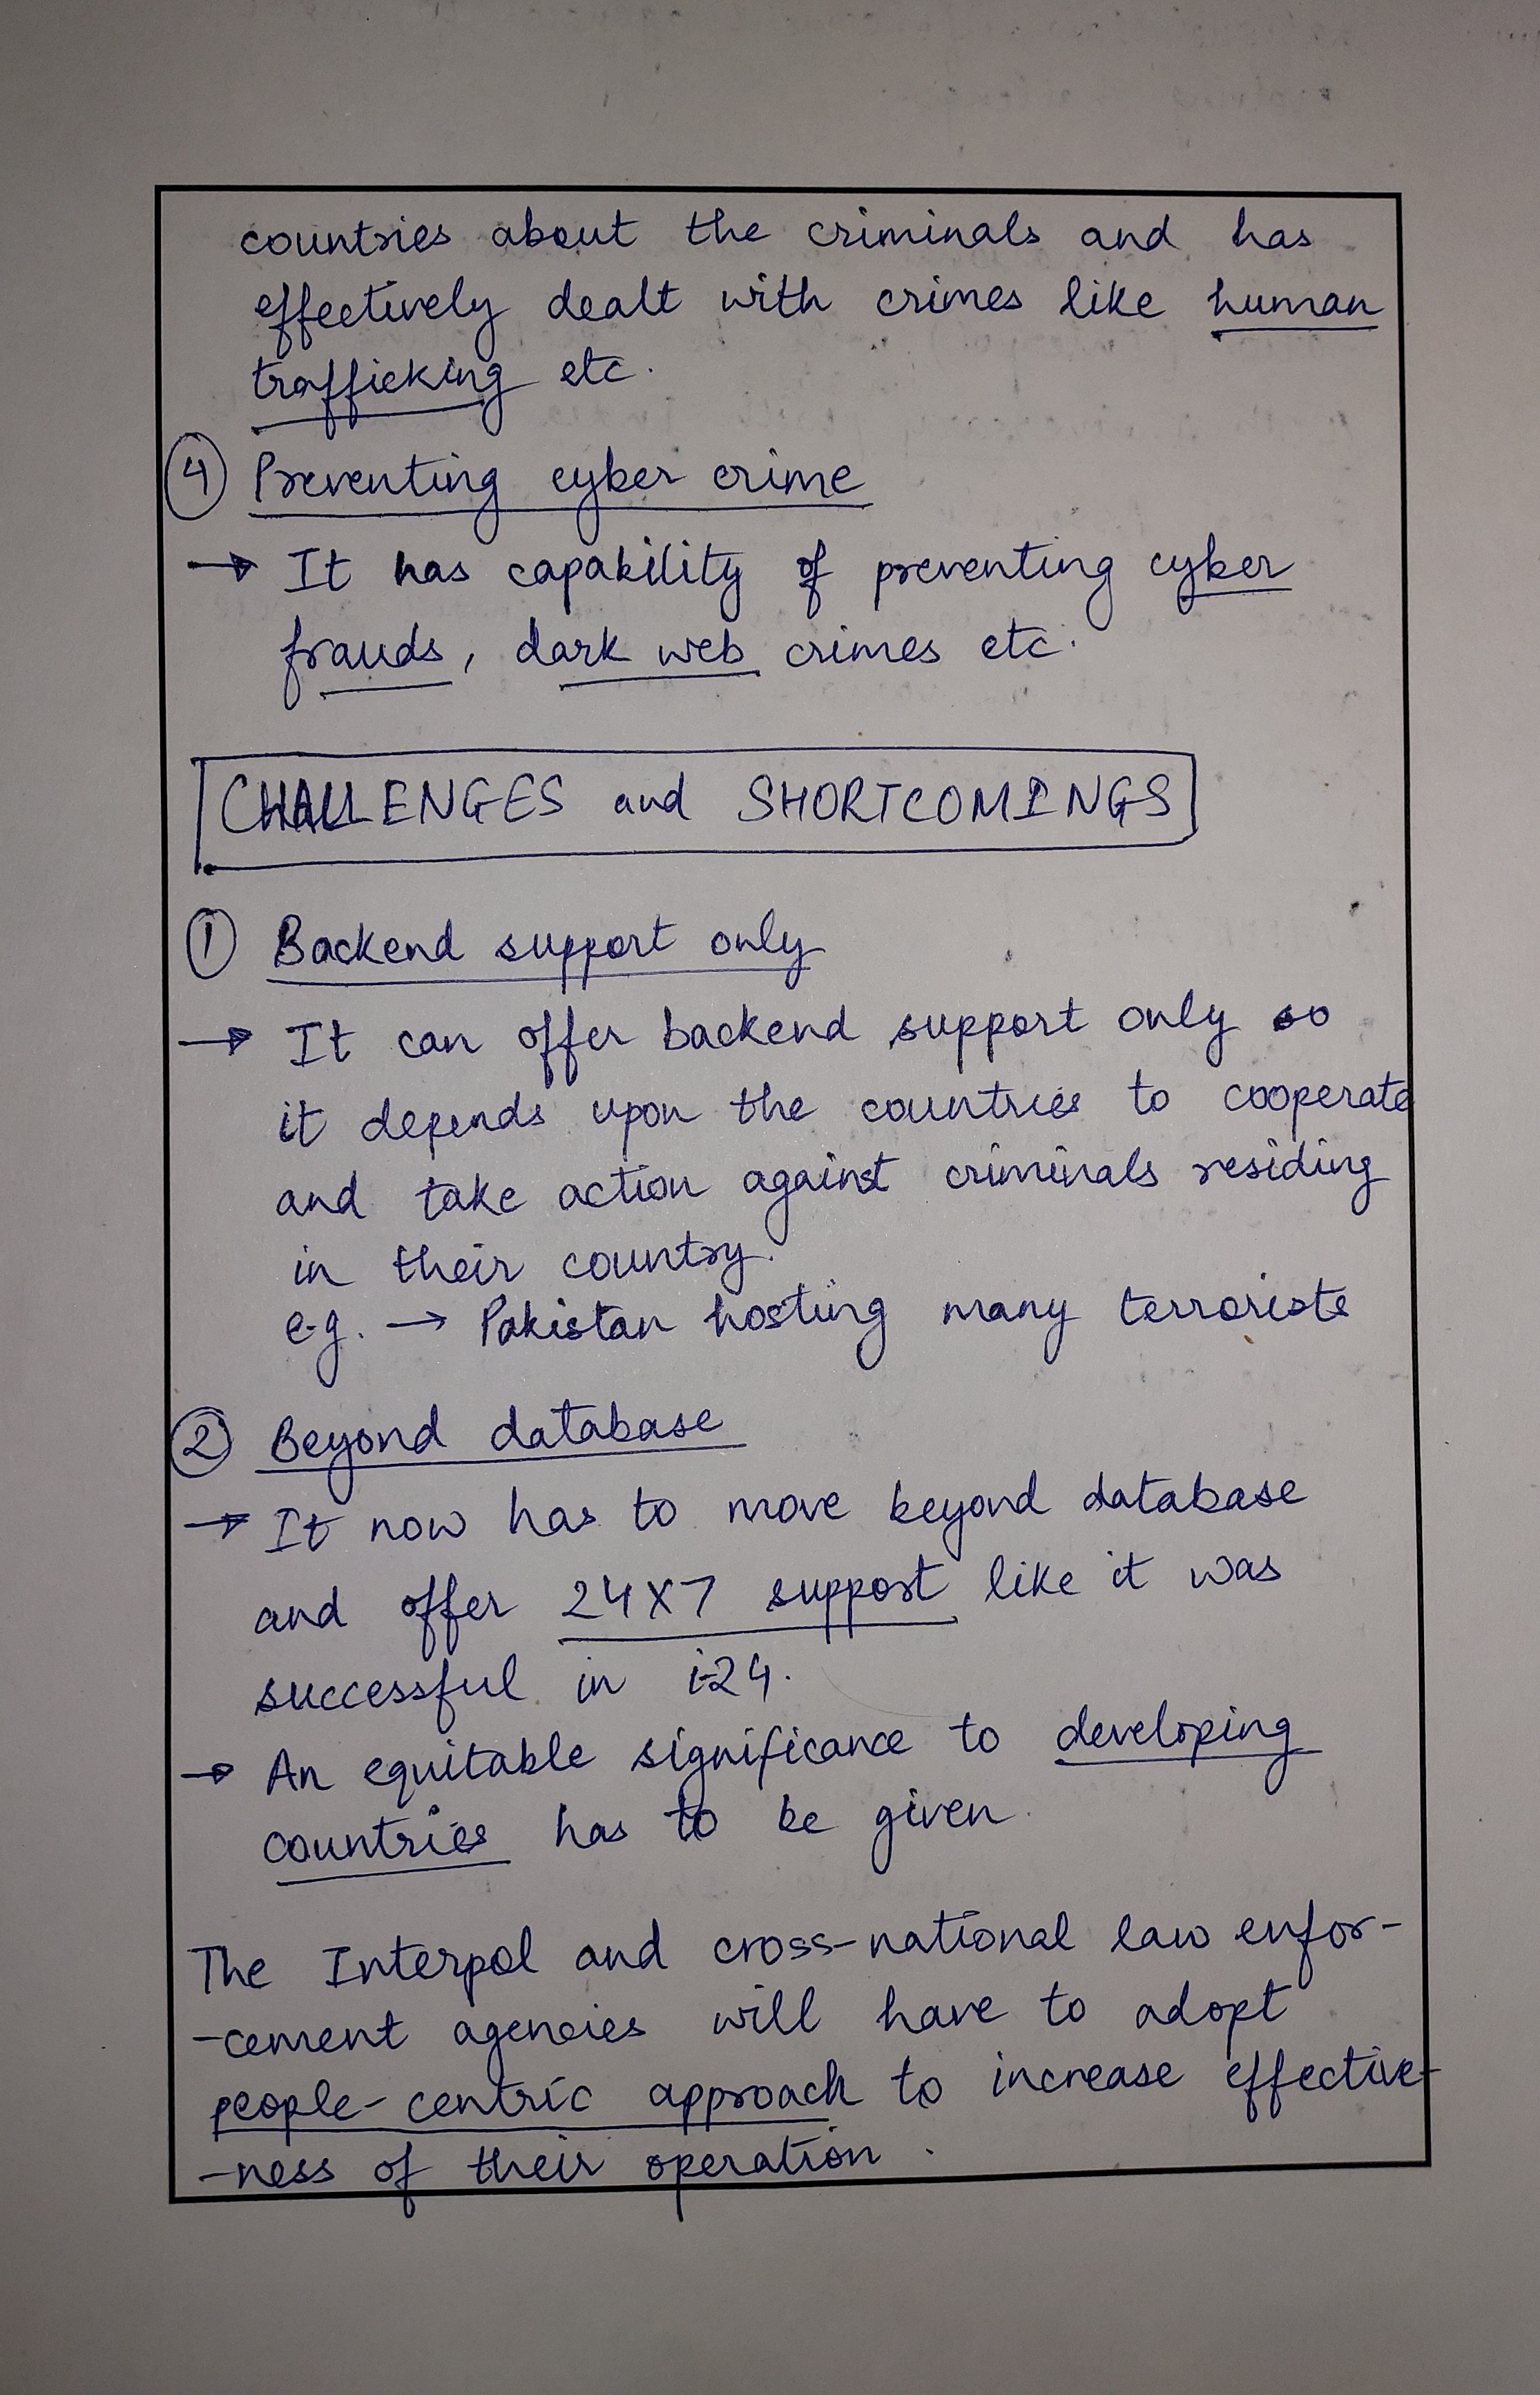 countries about the criminals and has
effectively dealt with crimes like human
trafficking etc.
4 Preventing cyber crime
→ It has capability of preventing cyber
frauds, dark web crimes etc.
CHALLENGES and SHORTCOMINGS
1 Backend support only
→ It can offer backend support only so
it depends upon the countries to cooperate
and take action against criminals residing
in their country.
e.g. → Pakistan hosting many terrorists
2 Beyond database
→ It now has to move beyond database
and offer 24X7 support like it was
successful in i-24.
→ An equitable significance to developing
countries has to be given.
The Interpol and cross-national law enfor-
-cement agencies will have to adopt
people-centric approach to increase effective-
-ness of their operation.